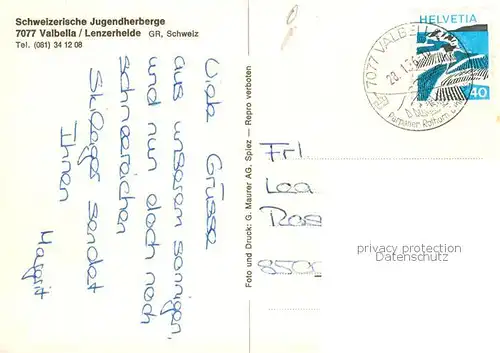 Schweizerische Jugendherberge
7077 Valbella / Lenzerheide GR, Schweiz
Tel. (081) 34 12 08
Viele Grüsse
aus unserem sonnigen
und nun doch noch
schneereichen
Skilager sendet
Ihnen
Margrit
Foto und Druck: G. Maurer AG, Spiez — Repro verboten
7077 VALBELLA
HELVETIA
40
Parpaner Rothorn
Frl.
Lea
8500
privacy protection
Datenschutz